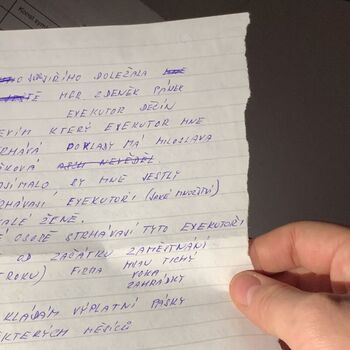 O JIŘÍHO DOLEŽALA
MGR ZDENĚK PÁNEK
EXEKUTOR DĚČÍN
EVÍM KTERÝ EXEKUTOR MNE
RHÁVÁ DOKLADY MÁ MILOSLAVA
ŠKOVÁ
AJÍMALO BY MNE JESTLI
RHÁVAJÍ EXEKUTOŘI (JAKÉ MNOŽSTVÍ)
VALÉ ŽENĚ.
É OSOBĚ STRHÁVAJÍ TYTO EXEKUTOŘI
OD ZAČÁTKU ZAMĚSTNÁNÍ
ROKU) FIRMA MILAN TICHÝ
ZAHRÁDKY
KLÁDÁM VÝPLATNÍ PÁSKY
KTERÝCH MĚSÍCŮ